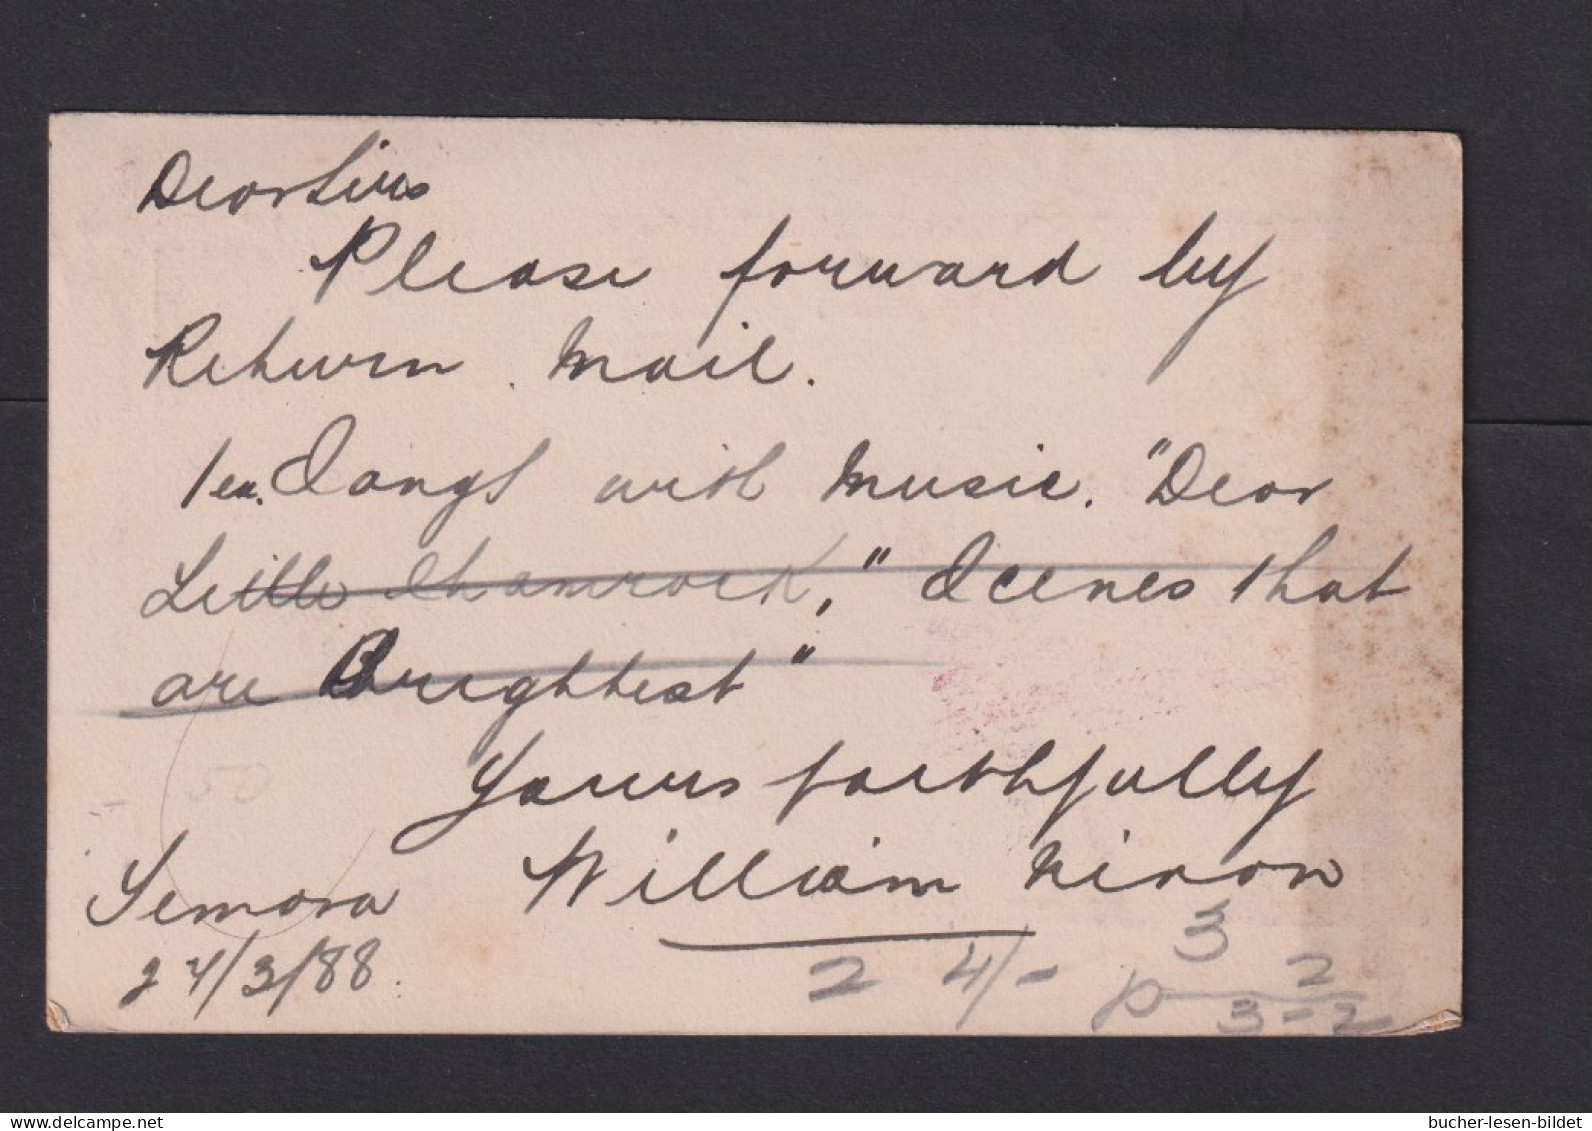 Dear Sirs
Please forward by
Return Mail.
1 ea. Songs with Music. "Dear
Little Shamrock," Scenes that
are Brightest"
Yours faithfully
William Nixon
24/3/88.
3
2 4/-
2
3-2
50
bucher-lesen-bildet